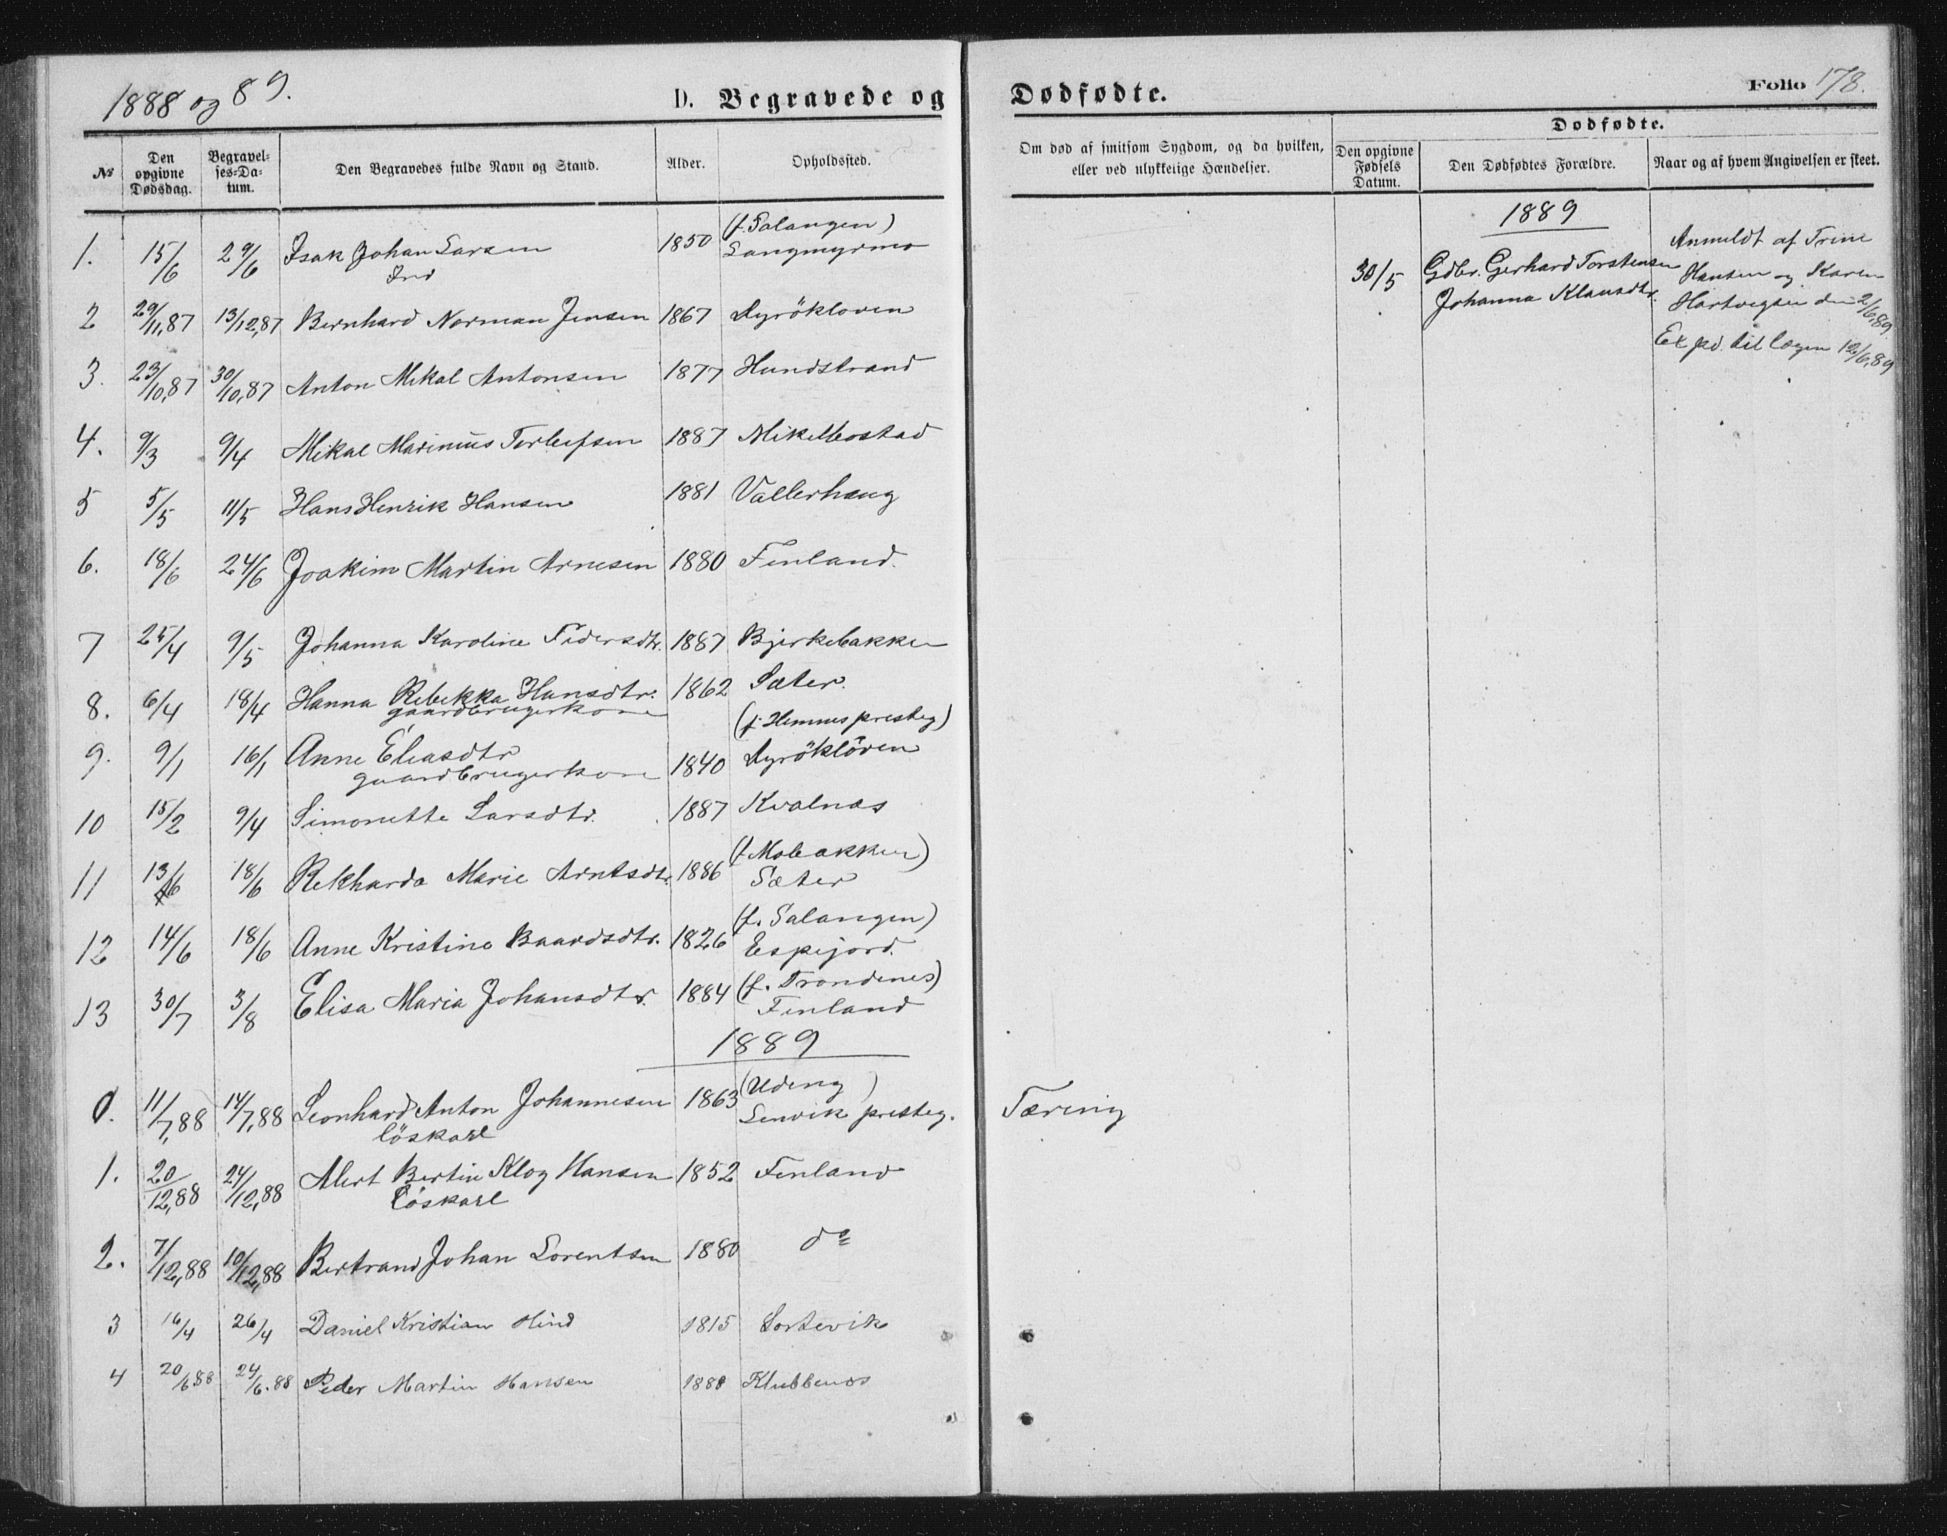 1888 og 89.
D. Begravede og
Dødfødte.
Folio 178.
№
Den opgivne Dødsdag.
Begravel-ses-Da-tum.
Den Begravedes fulde Navn og Stand.
Alder.
Opholdssted.
Om død af smitsom Sygdom, og da hvilken, eller ved ulykkelige Hændelser.
Dødfødte.
Den opgivne Fødsels Datum.
Den Dødfødtes Forældre.
Naar og af hvem Angivelsen er skeet.
(f. Salangen)
1. 15/6 29/6 Isak Johan Larsen 1850 Langmyrmo
Ind
2 29/11,87 13/12,87 Bernhard Norman Jensen 1867 Dyrökloven
3. 23/10,87 30/10,87 Anton Mikal Antonsen 1877 Hundstrand
4. 9/3 9/4 Mikal Marinius Torleifsen 1887 Mikelbostad
5 5/5 11/5 Hans Henrik Hansen 1881 Vallerhaug
6. 18/6 24/6 Joakim Martin Arnesen 1880 Finland.
7 25/4 9/5 Johanna Karoline Pedersdtr. 1887 Bjerkebakken
8. 6/4 18/4 Hanna Rebekka Hansdtr. 1862 Sæter.
gaardbrugerkone
(f. Hemnes presteg)
9. 9/1 16/1 Anne Eliasdtr 1840 Dyröklöven
gaardbrugerkone
10 15/2 9/4 Simonette Larsdtr. 1887 Kvalnæs
(f. Mobakken)
11 13/6 18/6 Rekharda Marie Arntsdtr. 1886 Sæter
(f. Salangen)
12 14/6 18/6 Anne Kristine Baardsdtr. 1826 Espejord.
(f. Trondenes)
13 30/7 3/8 Elisa Maria Johansdtr. 1884 Finland
1889
(Udeng)
0. 11/7,88 14/7,88 Leonhard Anton Johannesen 1863 Lenvik presteg. Tæring
löskarl
1. 20/12,88 24/12,88 Alert Bertin Klog Hansen 1852 Finland
Löskarl
2. 7/12,88 10/12,88 Bertrand Johan Lorentsen 1880 do
3 16/4 26/4 Daniel Kristian Hind 1815 Sortevik
4 20/6 88 24/6.88 Peder Martin Hansen 1888 Klubbenes
1889
30/5 Gdbr. Gerhard Torstensen
Johanna Klausdtr.
Anmeldt af Trine
Hansen og Karen
Hartvigsen den 2/6,89
Exped. til lægen 12/6,89